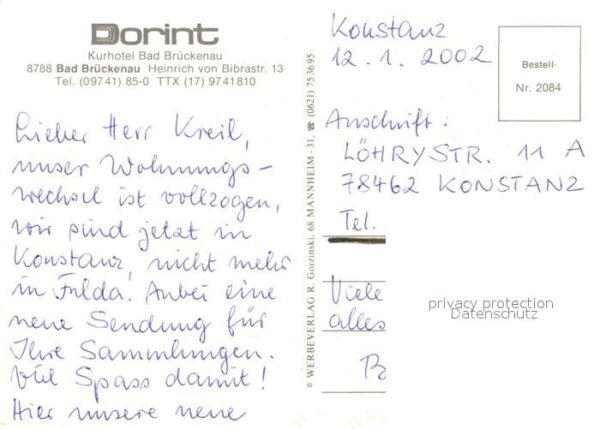 Dorint
Kurhotel Bad Brückenau
8788 Bad Brückenau Heinrich von Bibrastr. 13
Tel. (09741) 85-0 TTX (17) 9741810
Lieber Herr Kreil,
unser Wohnungs-
wechsel ist vollzogen,
wir sind jetzt in
Konstanz, nicht mehr
in Fulda. Anbei eine
neue Sendung für
Ihre Sammlungen.
Viel Spass damit!
Hier unsere neue
© WERBEVERLAG R. Gorzinski, 68 MANNHEIM-31, ☎ (0621) 753695
Konstanz
12.1.2002
Bestell-
Nr. 2084
Anschrift:
LÖHRYSTR. 11 A
78462 KONSTANZ
Tel.
Viele
alles
privacy protection
Datenschutz